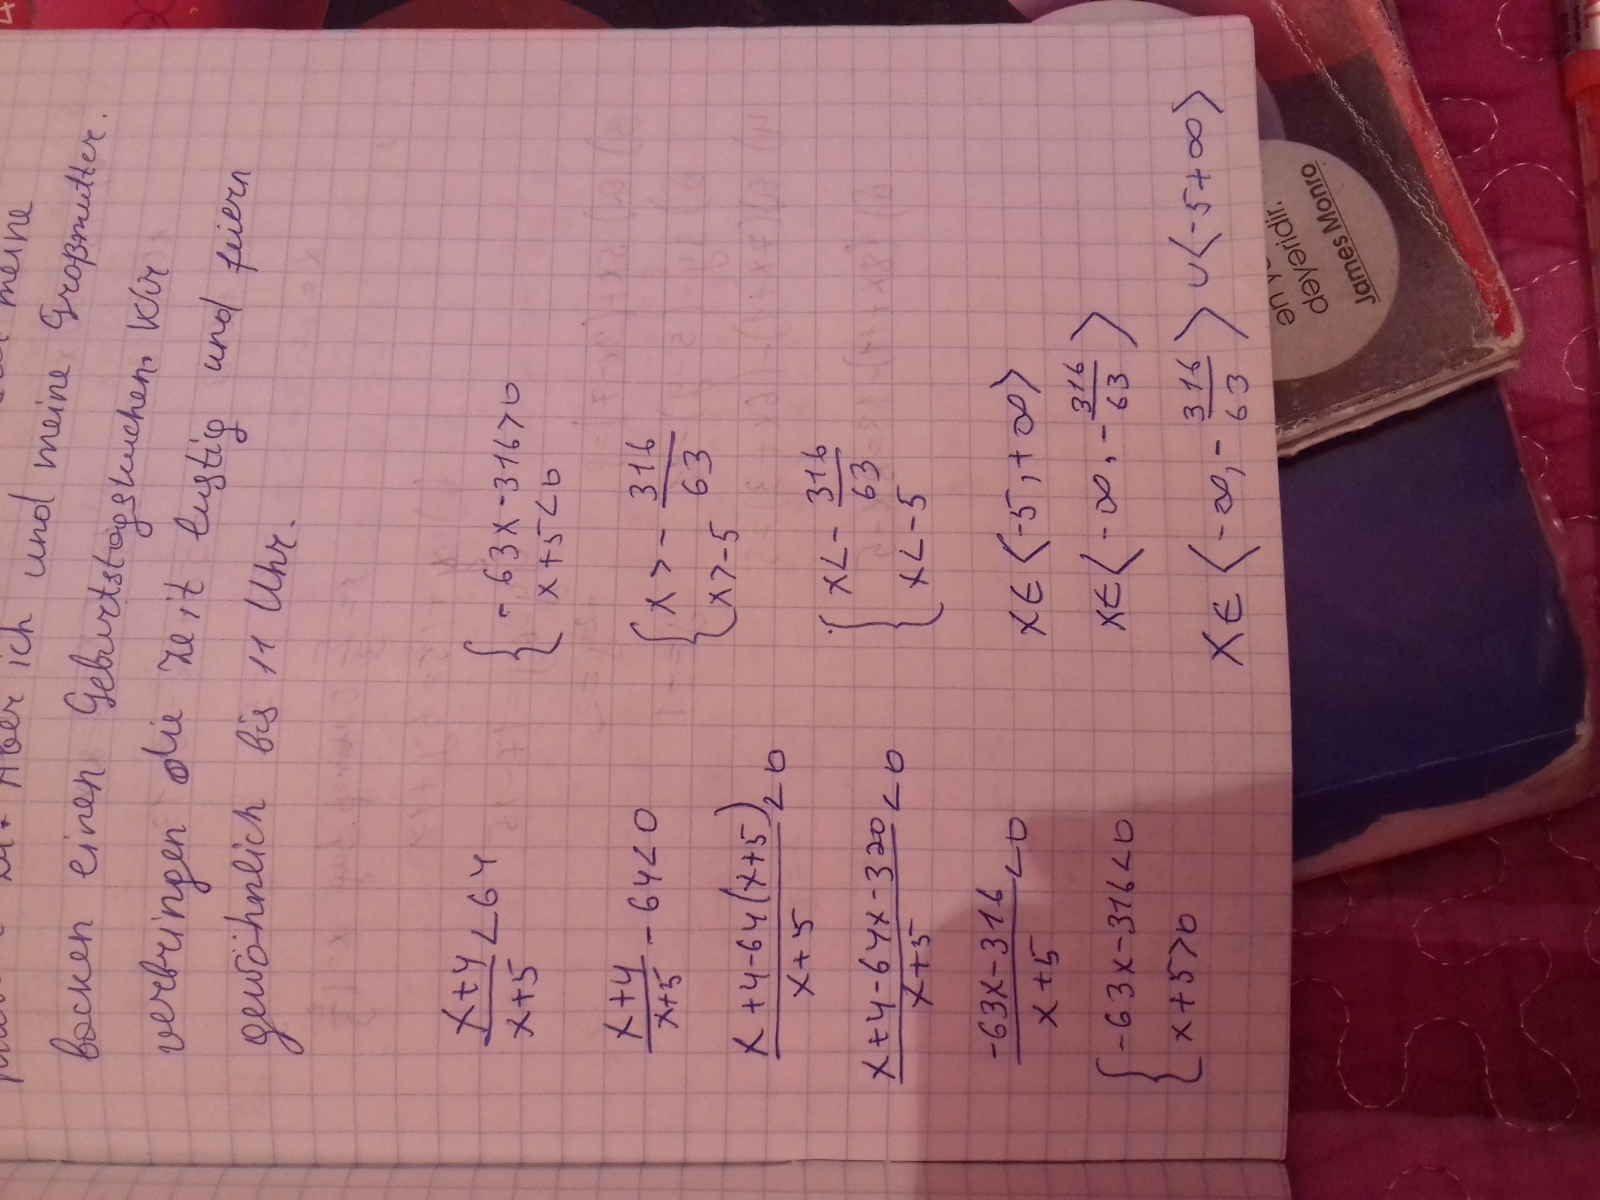 meine
Aber ich und meine Großmutter.
backen einen Geburtstagskuchen. Wir
verbringen die Zeit lustig und feiern
gewöhnlich bis 11 Uhr.
x+4/x+5 < 64
x+4/x+5 - 64 < 0
x+4-64(x+5)/x+5 < 0
x+4-64x-320/x+5 < 0
-63x-316/x+5 < 0
{ -63x-316<0
x+5>0
{ -63x-316>0
x+5<0
{ x > - 316/63
x>-5
{ x < - 316/63
x<-5
x∈⟨-5,+∞⟩
x∈⟨-∞,-316/63⟩
x∈⟨-∞,-316/63⟩∪⟨-5+∞⟩
deyeridir.
James Monro